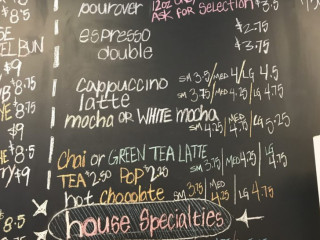 pourover 12oz only
ASK FOR SELECTION $3
espresso $2.75
double $3.75
cappuccino SM 3.5/MED 4/LG 4.5
latte SM 3.75/MED 4.25/LG 4.75
mocha OR WHITE mocha SM 4.25/MED 4.75/LG 5.25
chai or GREEN TEA LATTE SM 3.75/MED 4.25/LG 4.75
TEA $2.50 POP $2.00
hot chocolate SM 3.75/MED 4.25/LG 4.75
house specialties
$8.5
SE
EL BUN
$9
$8.75
$8.75
$9
$8.5
$9
$8.5